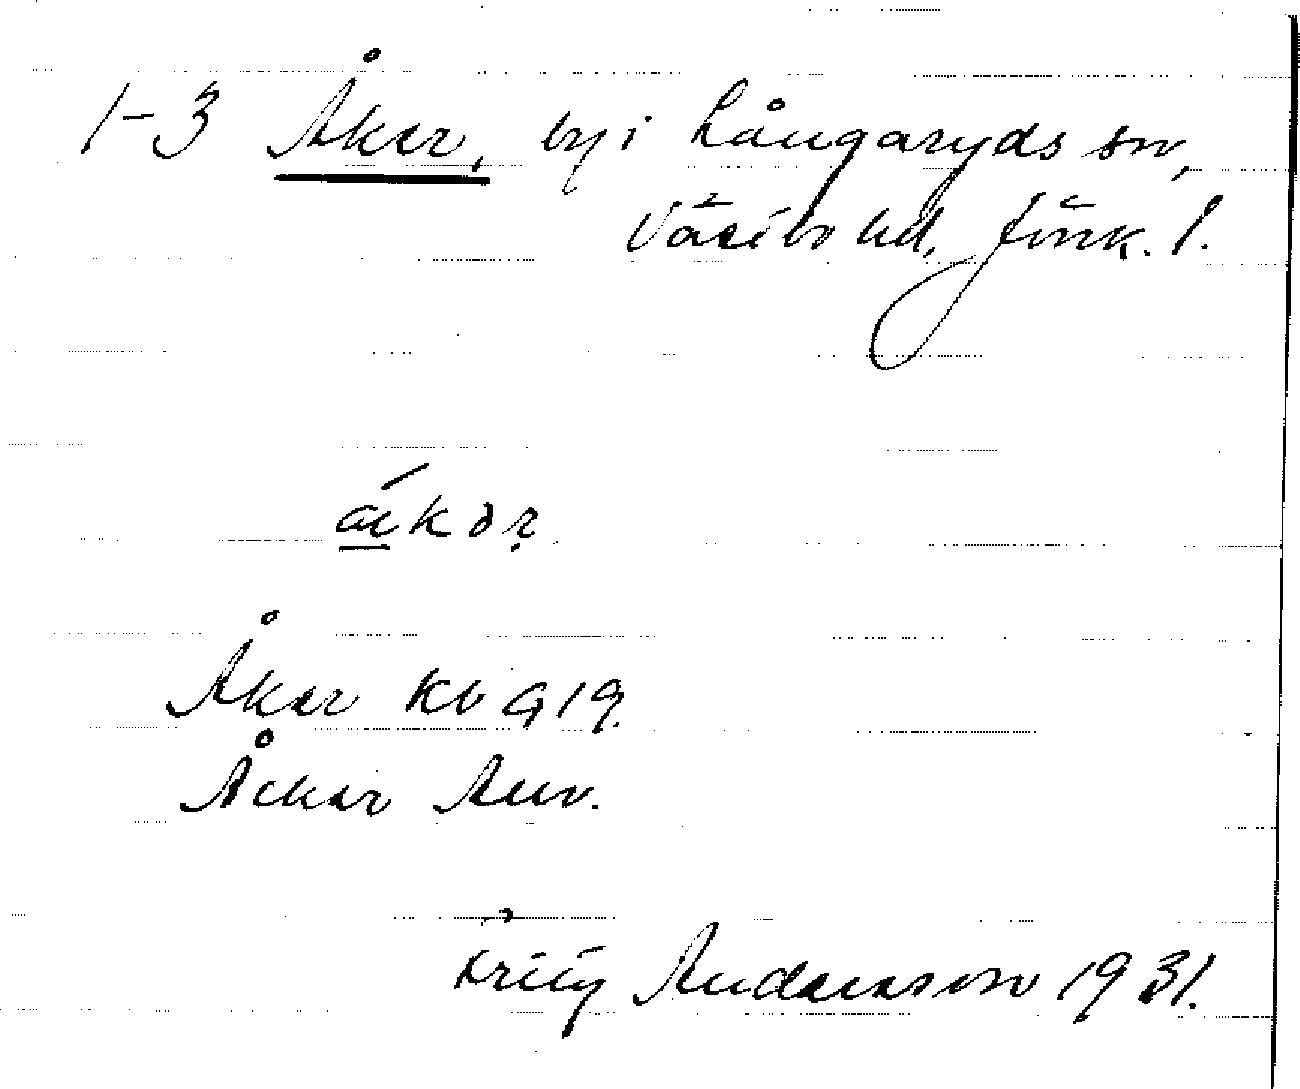 1-3 Åker, by i Långaryds sn,
Västbo hd, Jönk. l.
Åker Kb G 19.
Åcker Anv.
Andersson 1931.